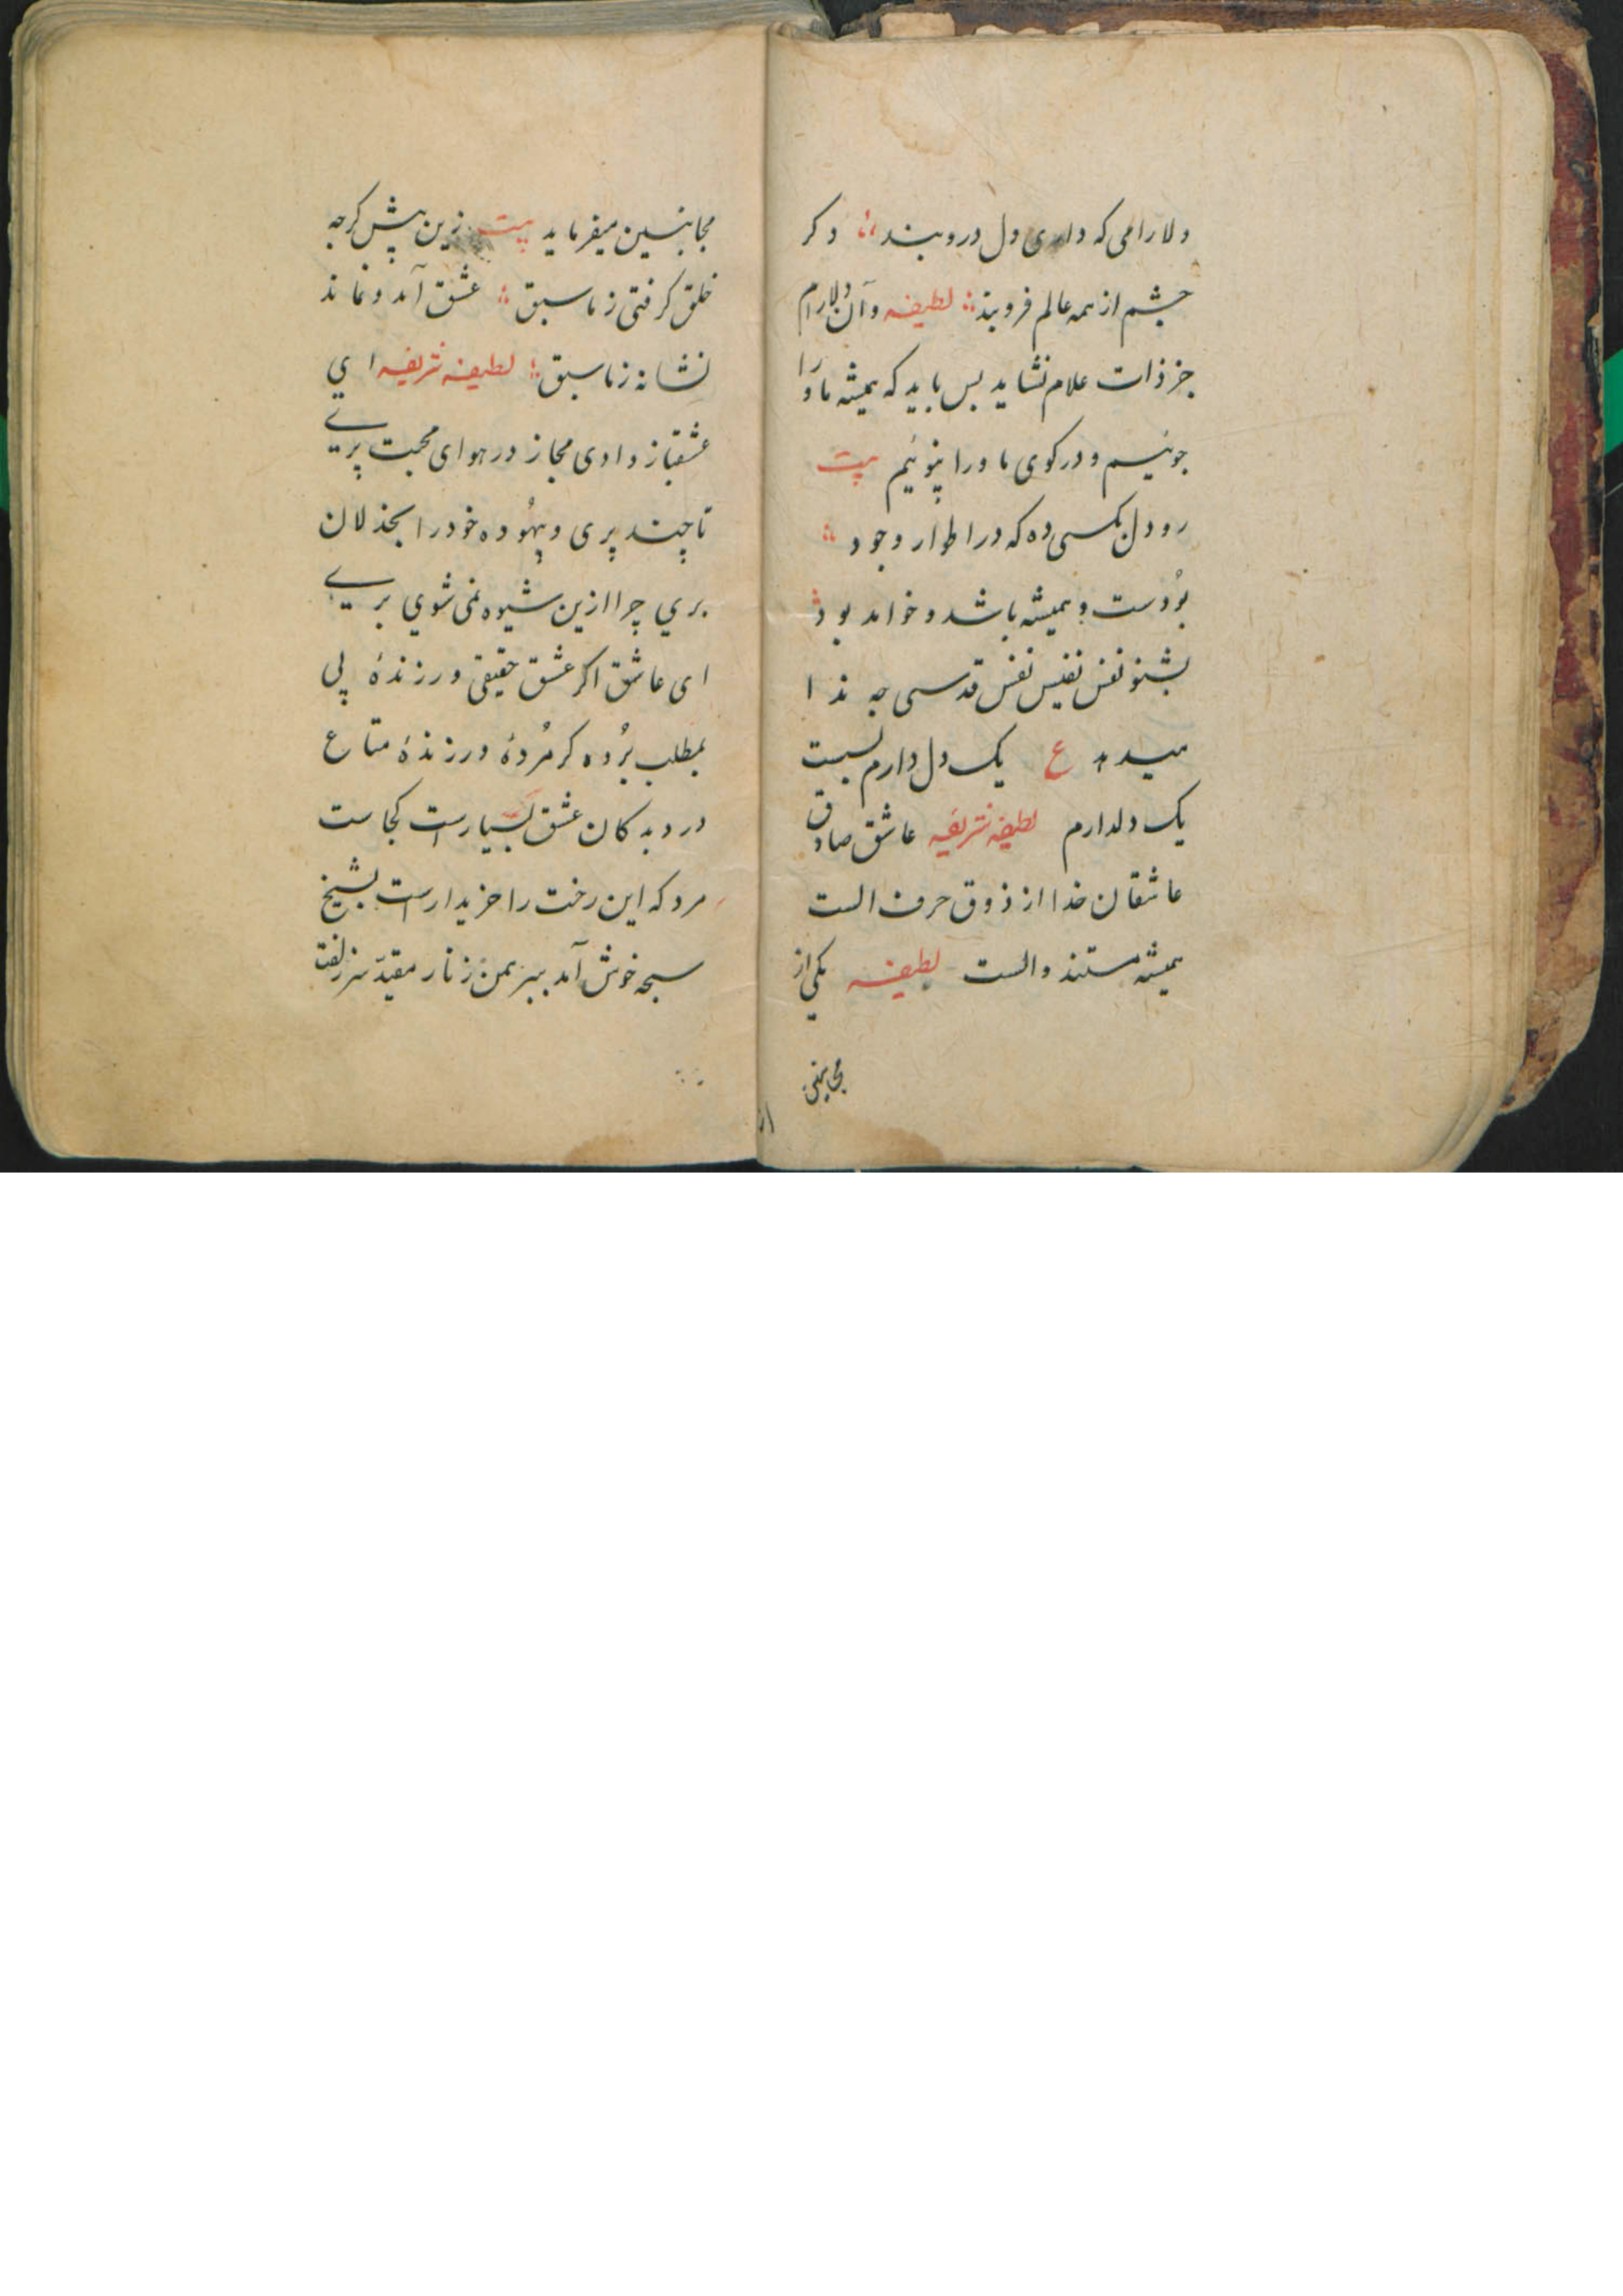 دلارامی که داری دل دروبند ؞ دکر
چشم از همه عالم فروبند ؞ لطیفه وآن دلارام
جز ذات علام نشاید بس باید که همیشه ما ورا
جوئیم و در کوی ما ورا پوئیم بیت
رو دل بکسی ده که در اطوار وجود ؞
بُودست و همیشه باشد و خواهد بود ؞
بشنو نفس نفیس نفس قدسی چه ندا
میدهد ع یک دل دارم بسست
یک دلدارم لطیفه شریفه عاشق صادق
عاشقان خدا از ذوق حرف الست
همیشه مستند والست لطیفه یکی از
مجانین
مجانین میفرماید بیت زین پیش کرچه
خلق کرفتی ز ما سبق ؞ عشق آمد و نماند
نشانه ز ما سبق ؞ لطیفه شریفه ای
عشقباز وادی مجاز در هوای محبت پری
تا چند پری و بیهُوده خود را بخذلان
بري چرا ازین شیوه نمی شوي بری
ای عاشق اکر عشق حقیقی ورزندهٔ پی
بمطلب بُرده کر مُردهٔ ور زندهٔ متاع
درد به کان عشق بسیارست کجاست
مرد که این رخت را خریدارست بشیخ
سبحه خوش آمد ببرهمن زنار مقید سر زلفت